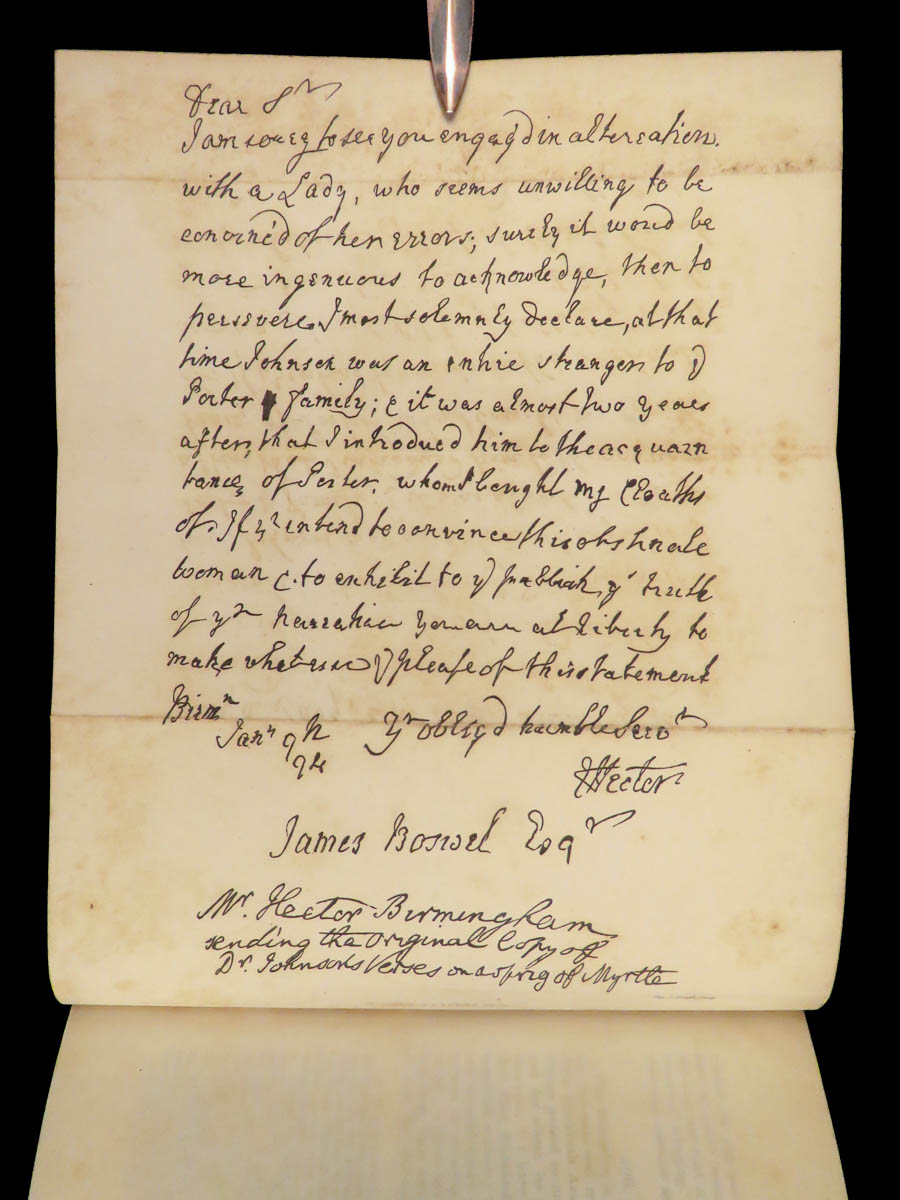 Dear Sr
I am sorry to see you engag'd in altercation.
with a Lady, who seems unwilling to be
convinc'd of her errors; surely it would be
more ingenuous to acknowledge, then to
persevere. I most solemnly declare, at that
time Johnson was an entire stranger to ye
Porter family; & it was almost two years
after, that I introduced him to the acquain
tance of Porter, whom I bought my Cloaths
of. If yu intend to convince this obstinate
woman & to exhibit to ye publick ye truth
of yr narrative you are at liberty to
make whatever use you please of this statement
Birmm
Jany 9th Yr oblig'd humble Servt
94
EHector
James Boswel Esqr
Mr. Hector Birmingham
sending the original Copy of
Dr. Johnson's Verses on a sprig of Myrtle